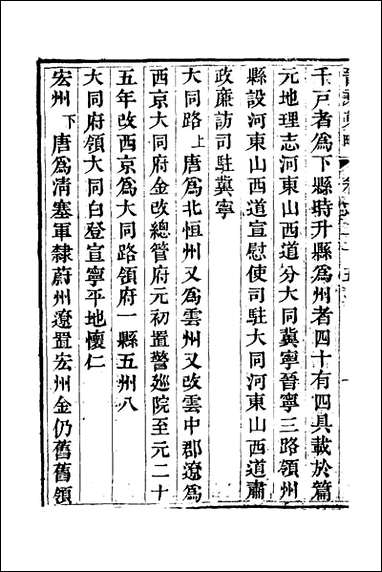 千戸者爲下縣時升縣爲州者四十有四具載於篇
元地理志河東山西道分大同冀寧晉寧三路領州
縣設河東山西道宣慰使司駐大同河東山西道肅
政廉訪司駐冀寧
大同路上唐爲北恒州又爲雲州又改雲中郡遼爲
西京大同府金改總管府元初置警廵院至元二十
五年改西京爲大同路領府一縣五州八
大同府領大同白登宣寧平地懷仁
宏州下唐爲清塞軍隸蔚州遼置宏州金仍舊舊領